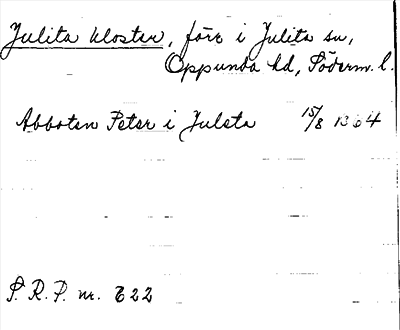 Julita kloster, förr i Julita sn,
Oppunda hd, Söderm. l.
Abboten Peter i Juleta 15/8 1364
S. R. P. nr. 622